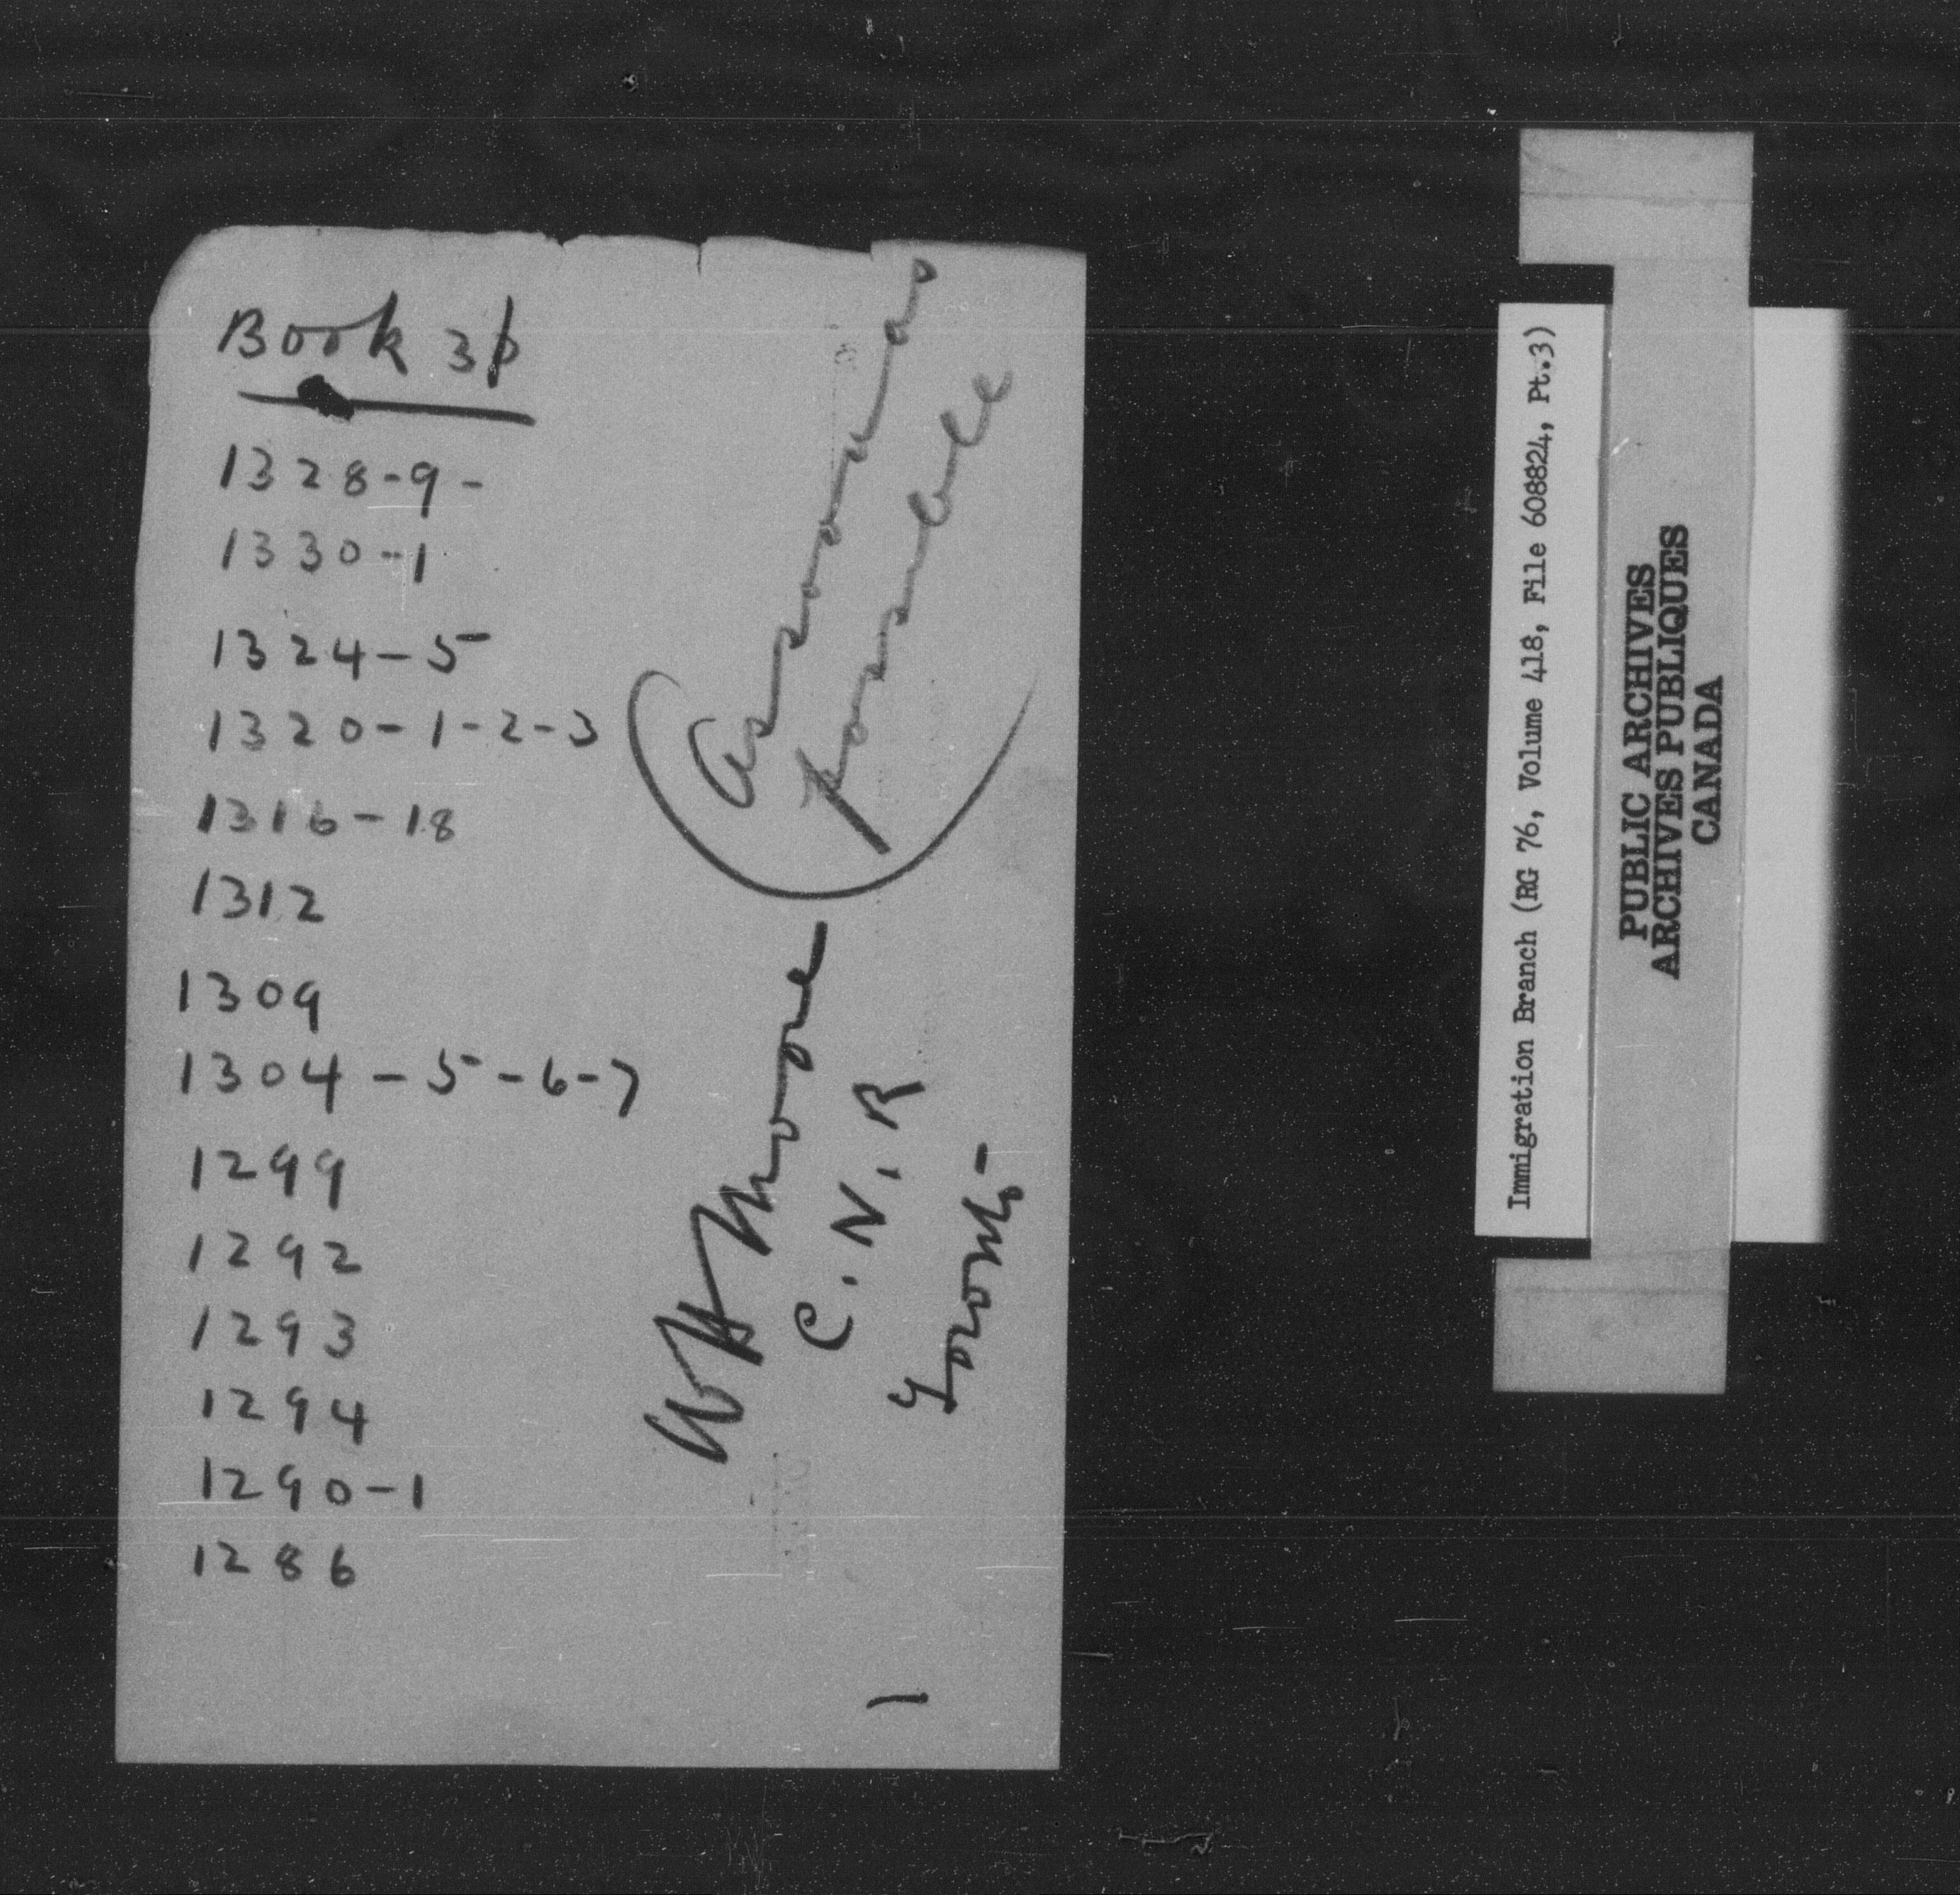 Book 36
1328-9-
1330-1
1324-5
1320-1-2-3
1316-18
1312
1309
1304-5-6-7
1299
1292
1293
1294
1290-1
1286
as soon as
possible
W H Moore
C.N.R
Toronto-
Immigration Branch (RG 76, Volume 418, File 608824, Pt.3)
PUBLIC ARCHIVES
ARCHIVES PUBLIQUES
CANADA